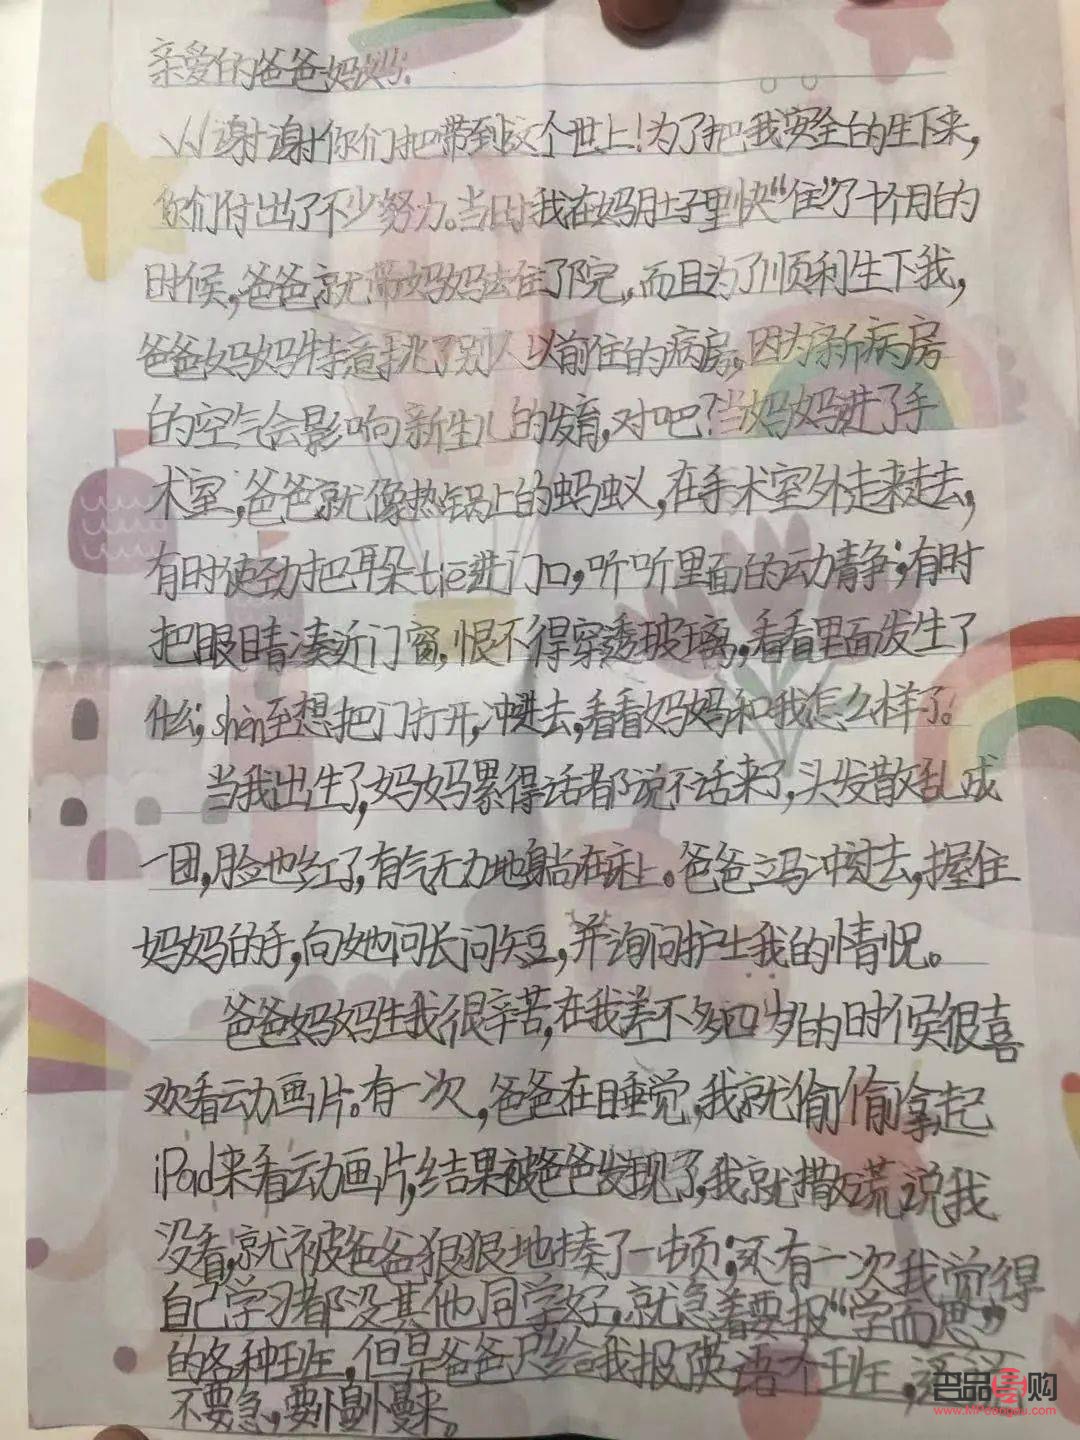 亲爱的爸爸妈妈:
谢谢你们把带到这个世上!为了把我安全的生下来,
你们付出了不少努力。当时我在妈肚子里快“住”了十个月的
时候,爸爸就带妈妈去住了院,而且为了顺利生下我,
爸爸妈妈特意挑了别人以前住的病房,因为新病房
的空气会影响新生儿的发育,对吧?当妈妈进了手
术室,爸爸就像热锅上的蚂蚁,在手术室外走来走去,
有时使劲把耳朵tiē进门口,听听里面的动静;有时
把眼睛凑近门窗,恨不得穿透玻璃,看看里面发生了
什么;shèn至想把门打开,冲进去,看看妈妈和我怎么样了。
当我出生了,妈妈累得话都说不话来了,头发散乱成
一团,脸也红了,有气无力地躺在床上。爸爸立马冲过去,握住
妈妈的手,向她问长问短,并询问护士我的情况。
爸爸妈妈生我很辛苦,在我差不多四岁的时候很喜
欢看动画片。有一次,爸爸在睡觉,我就偷偷拿起
iPad来看动画片,结果被爸爸发现了,我就撒谎说我
没看,就被爸爸狠狠地揍了一顿;还有一次我觉得
自己学习都没其他同学好,就急着要报“学而思”
的各种班,但是爸爸只给我报英语个班,
不要急,要慢慢来。
名品导购
www.MPdaogou.com